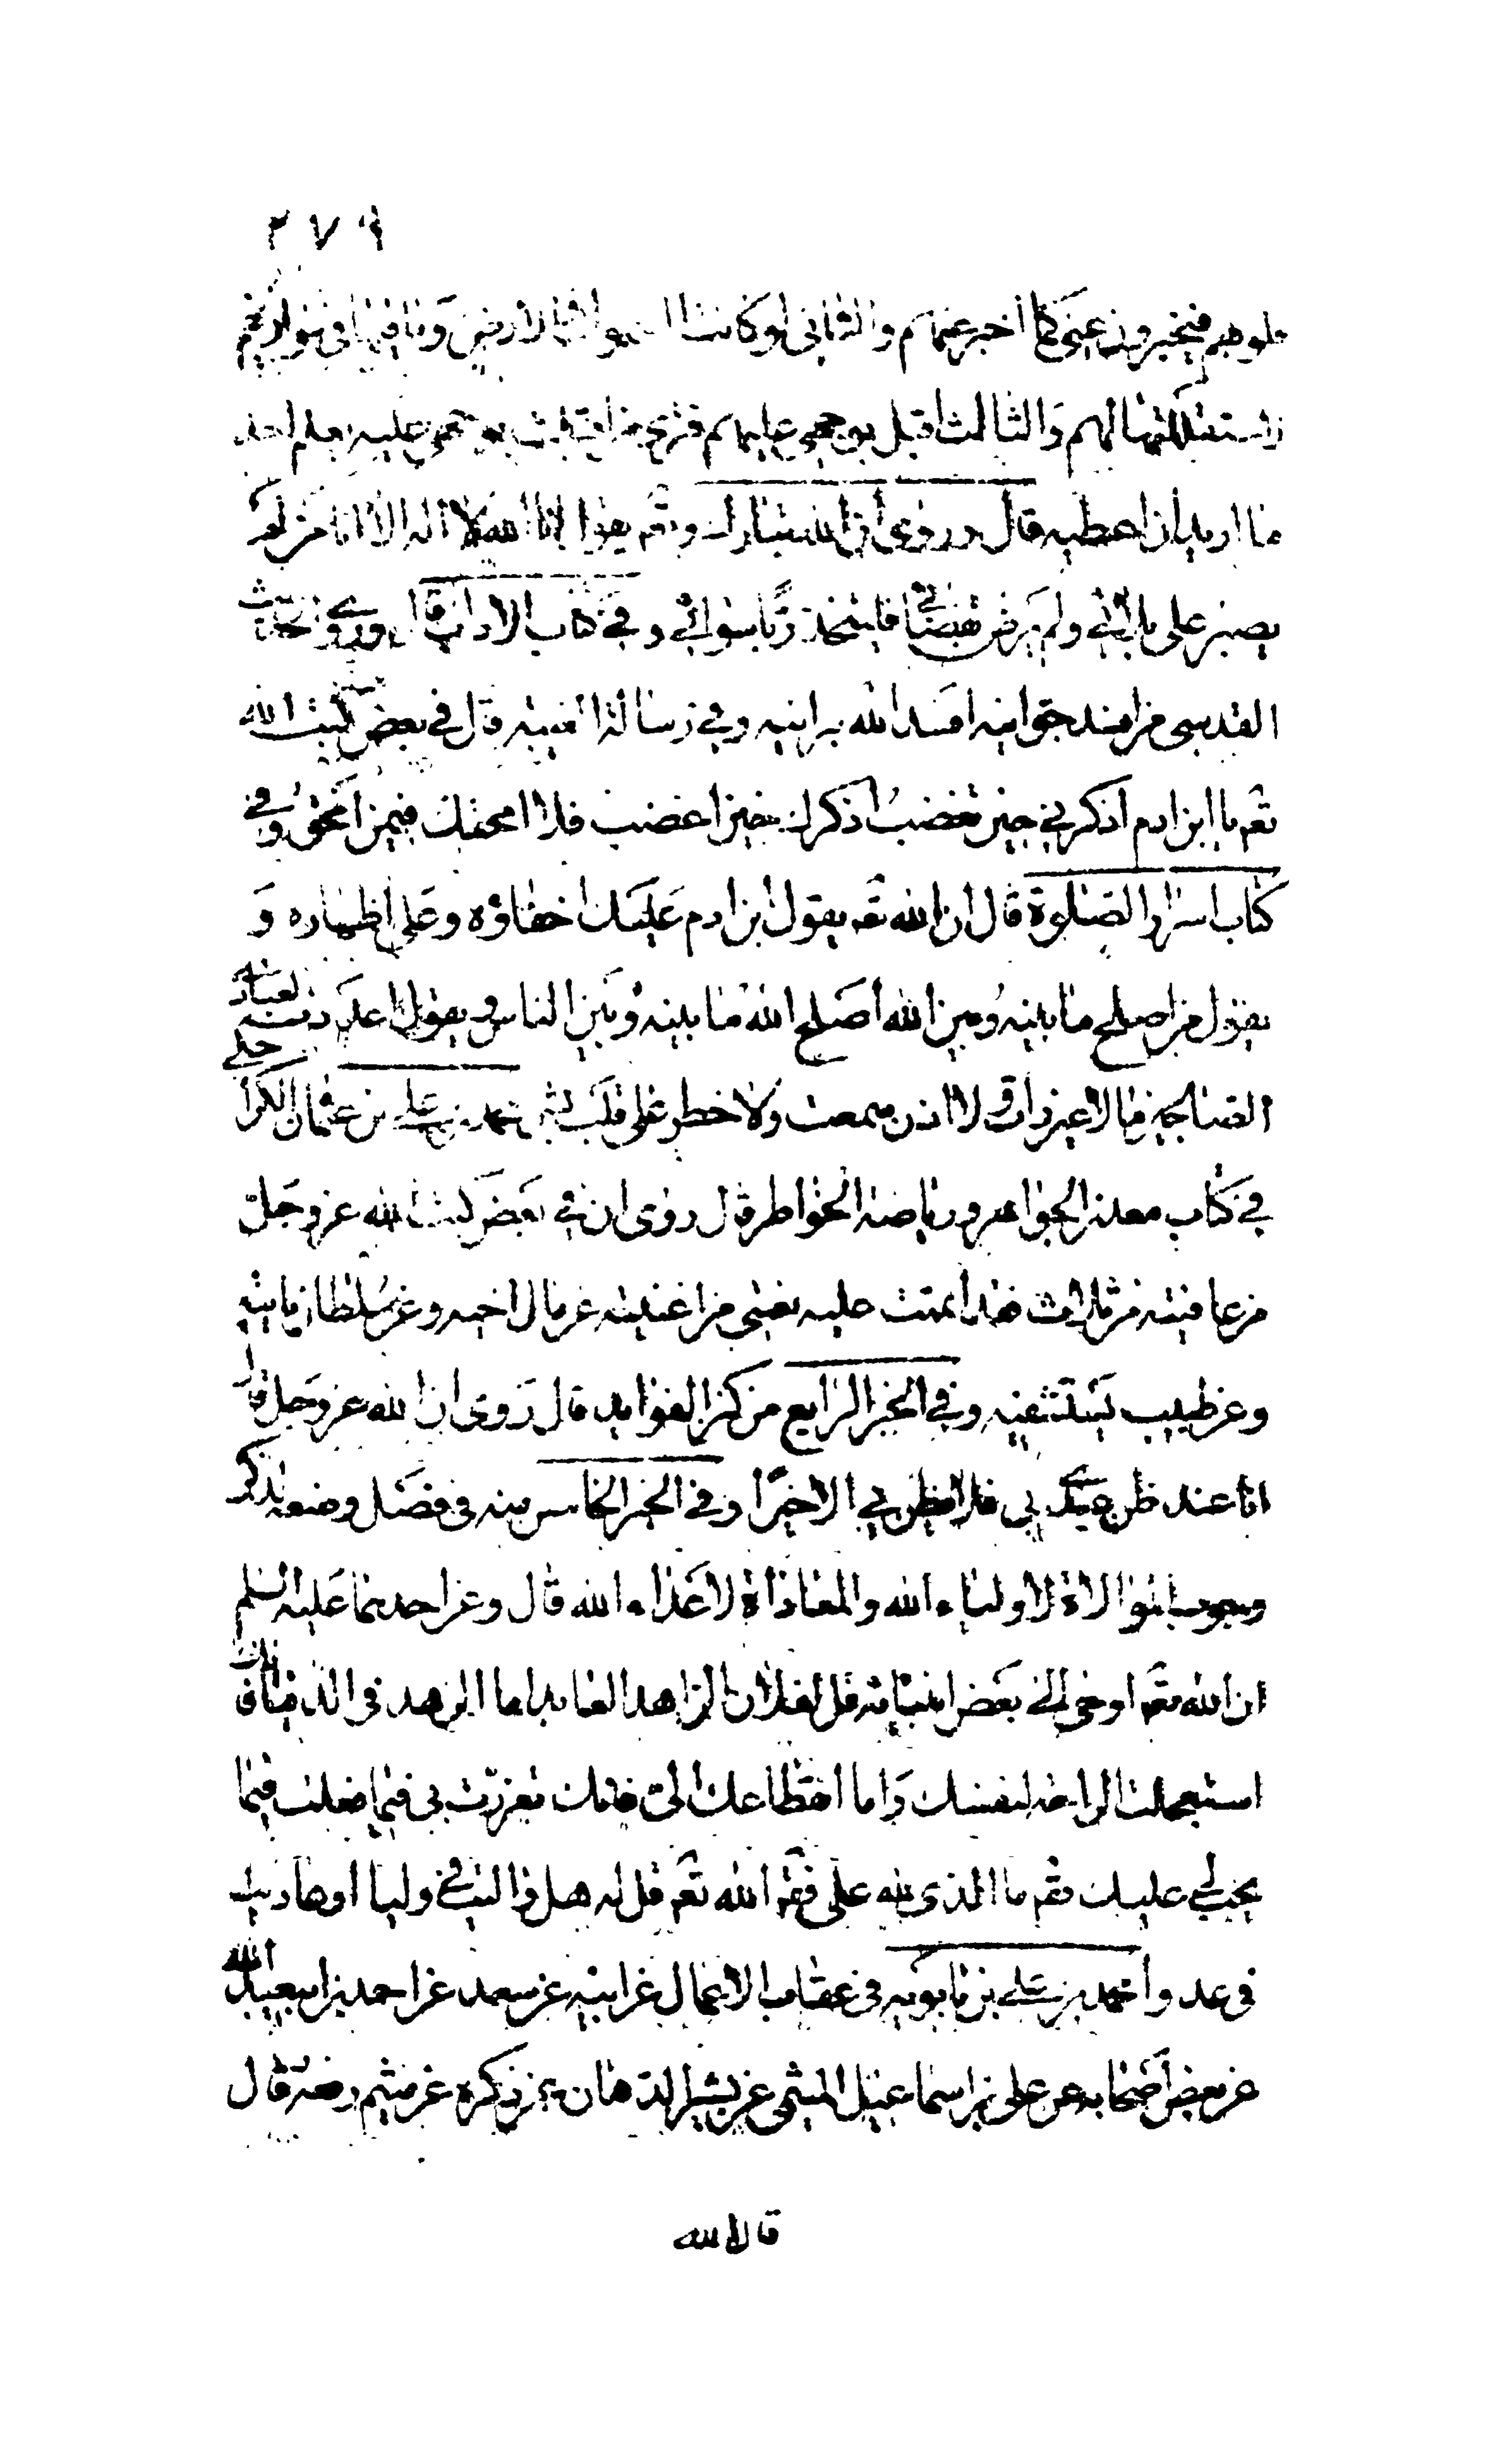 ٢٧٩
قلوبهم فيخبرون عني كما أخبر عنهم والثاني لو كانت السموات والأرضين وما فيها في موازينهم
لاستقللتها لهم والثالث أقبل بوجهي عليهم فترى من أقبلت بوجهي عليه يعلم أحد
ما اريد ان اعطيه قال وروى أن الله تبارك وتعم يقول انا الله لا اله الا انا من لم
يصبر على بلائي ولم يرض بقضائي فليتخذ ربا سوائي وفي كتاب الاداب قال وروي في الحديث
القدسي من افسد جوانيه افسد الله برانيه وفي رسالة الغيبة قال في بعض كتب الله
تعم يا ابن ادم اذكرني حين تغضب أذكرك حين اغضب فلا امحقك فيمن أمحق وفي
كتاب اسرار الصلوة قال ان الله تعم يقول ابن ادم عليك اخفاؤه وعلي اظهاره و
يقول من اصلح ما بينه وبين الله أصلح الله ما بينه وبين الناس ويقول اعددت لعبادي
الصالحين ما لا عين رات ولا اذن سمعت ولا خطر على قلب بشر محمد بن علي بن عثمان الكراجكي
في كتاب معدن الجواهر ورياضة الخواطر قال روى ان في بعض كتب الله عز وجل
من عافيته من ثلاث فقد أتممت عليه نعمتي من اغنيته عن مال اخيه وعن سلطان ياتيه
وعن طبيب يستشفيه وفي الجزء الرابع من كنز الفوايد قال روى ان الله عز وجل قال
انا عند ظن عبدي بي فلا يظن بي الا خيرا وفي الجزء الخامس منه في فصل وضعه لذكر
وجوب الموالاة لاولياء الله والمعاداة لاعداء الله قال وعن احدهما عليه السلم
ان الله تعم اوحى الى بعض انبيائه قل لفلان الزاهد العابد اما الزهد في الدنيا فانك
استعجلت الراحة لنفسك واما انقطاعك الى فانك تعززت بي فيما فعلت فيما
يجب لي عليك فقم ما الذي لله علي فقم الله تعم قل له هل واليت في وليا او عاديت
في عدوا محمد بن علي بن بابويه في عقاب الاعمال عن ابيه عن سعد عن احمد بن ابيعبد الله
عن بعض أصحابه عن علي بن اسماعيل الميثمي عن بشير الدهان عمن ذكره عن ميثم رفعه قال
قال الله